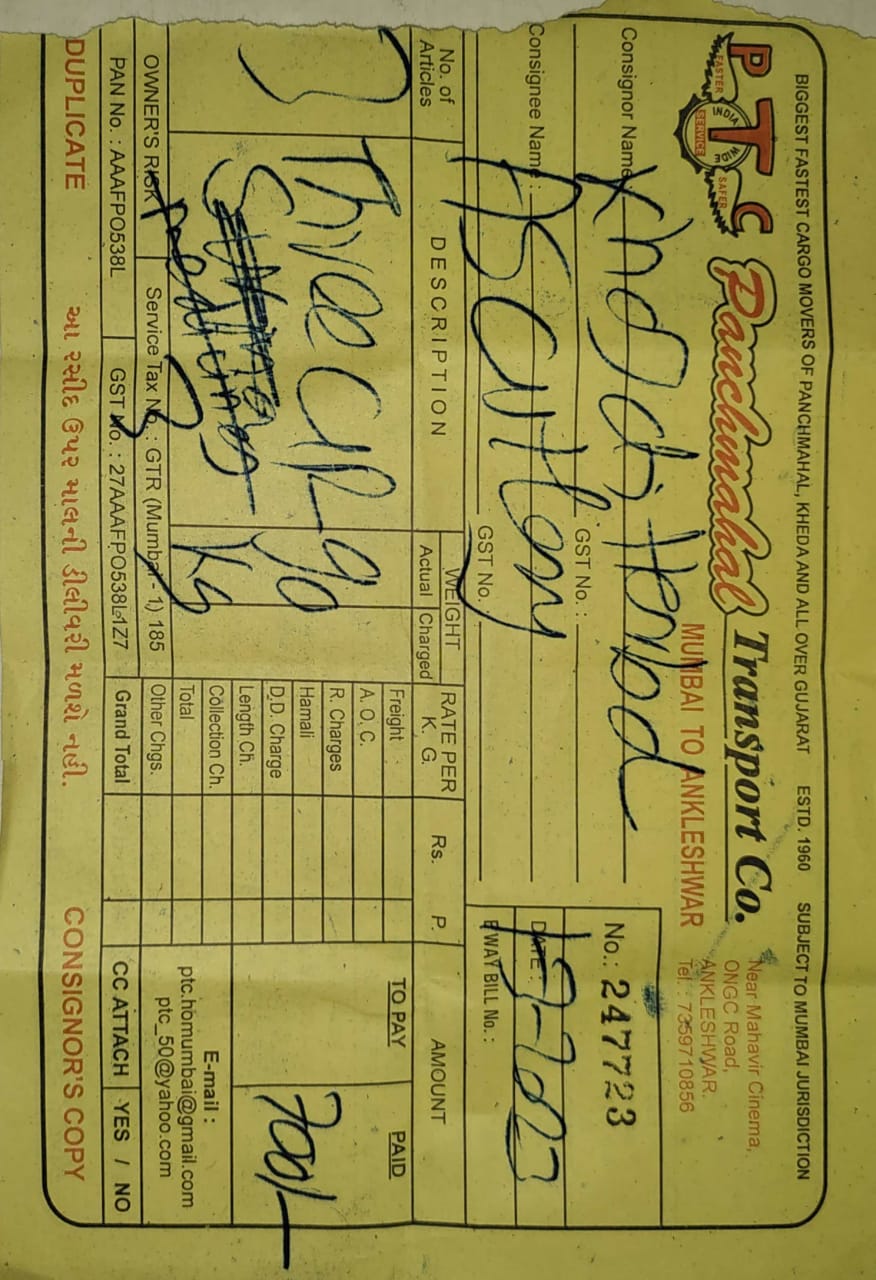 BIGGEST FASTEST CARGO MOVERS OF PANCHMAHAL, KHEDA AND ALL OVER GUJARAT ESTD. 1960 SUBJECT TO MUMBAI JURISDICTION
PTC
FASTER INDIA WIDE SAFER
SERVICE
Panchmahal Transport Co.
MUMBAI TO ANKLESHWAR
Near Mahavir Cinema,
ONGC Road,
ANKLESHWAR.
Tel. : 7359710856
Consignor Name
GST No. :
Consignee Name :
GST No.
No.: 247723
DATE :
E WAY BILL No. :
No. of Articles
DESCRIPTION
WEIGHT
Actual Charged
RATE PER K. G.
Rs. P.
AMOUNT
TO PAY PAID
3
Three
90
Kg
700/-
Freight
A. O. C.
R. Charges
Hamali
D.D. Charge
Length Ch.
Collection Ch.
Total
Other Chgs.
Grand Total
E-mail :
ptc.homumbai@gmail.com
ptc_50@yahoo.com
OWNER'S RISK Service Tax No. : GTR (Mumbai - 1) 185
PAN No. : AAAFPO538L GST No. : 27AAAFPO538L1Z7
CC ATTACH YES / NO
DUPLICATE આ રસીદ ઉપર માલની ડીલીવરી મળશે નહી. CONSIGNOR'S COPY